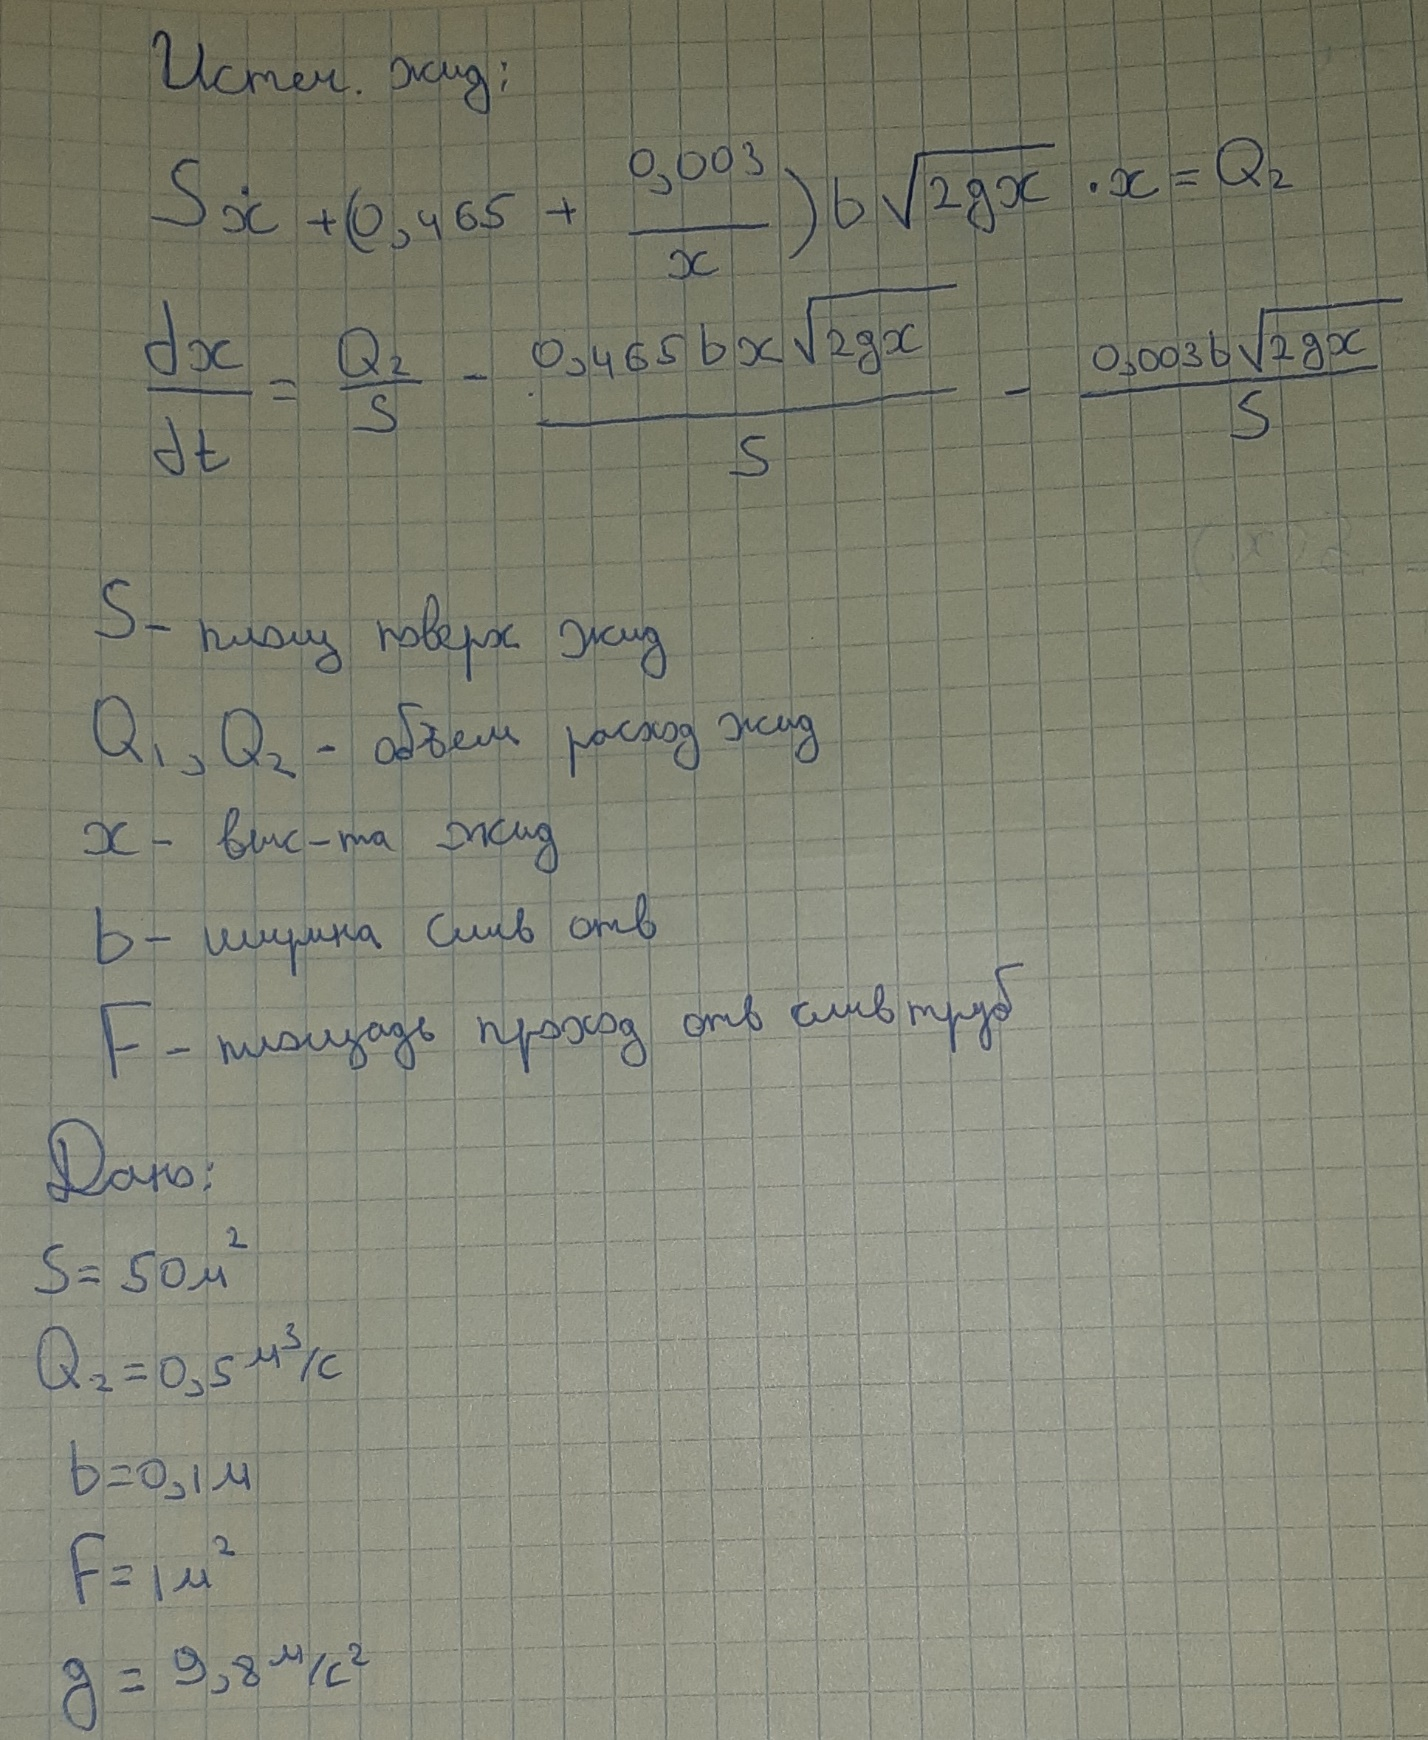 Истеч. жид:
Sẋ + (0,465 + 0,003/x) b √(2gx) · x = Q₂
dx/dt = Q₂/S - 0,465 b x √(2gx)/S - 0,003 b √(2gx)/S
S - площ поверх жид
Q₁, Q₂ - объем расход жид
x - выс-та жид
b - ширина слив отв
F - площадь проход отв слив труб
Дано:
S = 50 м²
Q₂ = 0,5 м³/с
b = 0,1 м
F = 1 м²
g = 9,8 м/с²